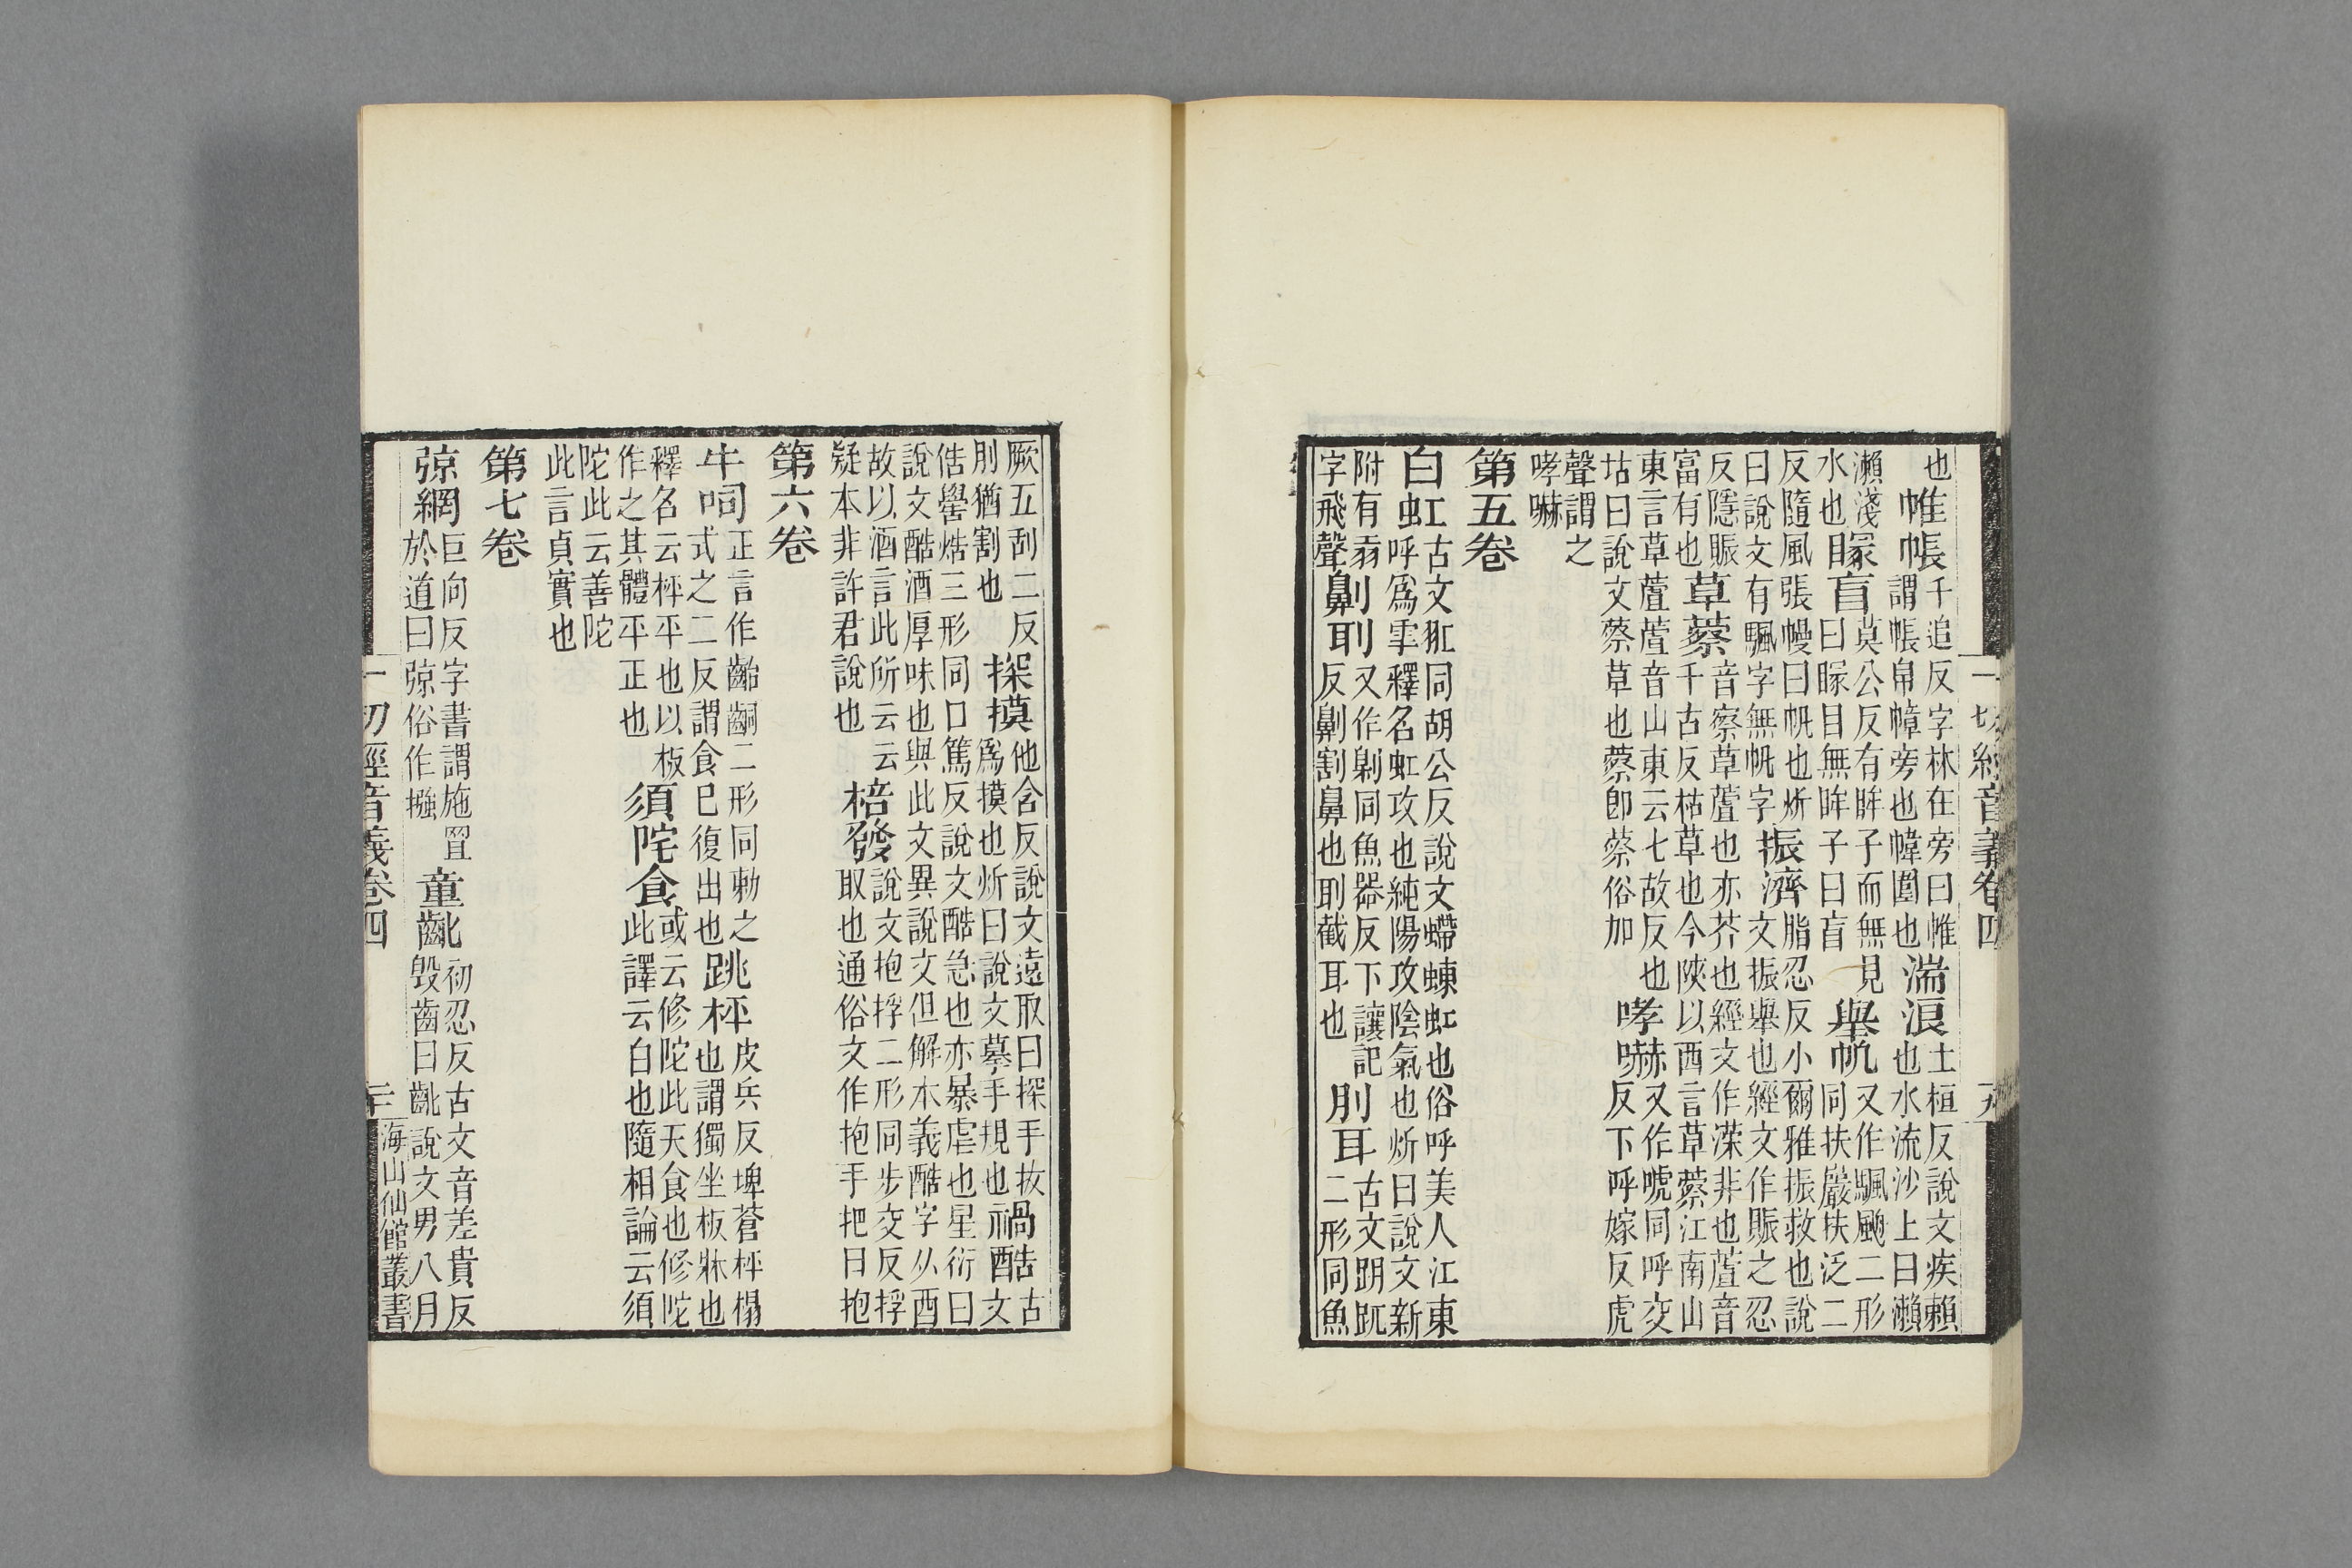 一切經音義卷四
五
也帷帳千追反字林在旁曰帷謂帳帛幛旁也幃圍也湍浪土桓反說文疾瀨也水流沙上曰瀨
瀨淺水也矇盲莫公反有眸子而無見曰矇目無眸子曰盲舉帆又作颿二形同扶嚴扶泛二
反隨風張幔曰帆也炘曰說文有颿字無帆字振濟脂忍反小爾雅振救也說文振舉也經文作賑之忍
反隱賑富有也草蔡音察草䕞也亦芥也經文作非也䕞音千古反枯草也今陝以西言草蔡江南山
東言草䕞䕞音山東云七故反也坫曰說文蔡草也蔡卽蔡俗加哮嚇又作唬同呼交反下呼嫁反虎
聲謂之哮嚇
第五卷
白虹古文同胡公反說文螮蝀虹也俗呼美人江東呼爲雩釋名虹攻也純陽攻陰氣也炘曰說文新
附有字飛聲劓刵又作同魚器反下讓記反劓割鼻也刵截耳也刖耳古文跀二形同魚
厥五刮二反刖猶割也探摸他含反說文遠取曰探手扷爲摸也炘曰說文摹手規也禍酷古文
俈嚳焅三形同口篤反說文酷急也亦暴虐也星衍曰說文酷酒厚味也與此文異說文但解本義酷字从酉
故以酒言此所云云疑本非許君說也棓發說文抱捊二形同步交反捊取也通俗文作抱手把曰抱
第六卷
牛呞正言作齝二形同勅之式之二反謂食已復出也跳枰皮兵反埤蒼枰榻也謂獨坐板牀也
釋名云枰平也以板作之其體平正也須陀食或云修陀此天食也修陀此譯云白也隨相論云須
陀此云善陀此言貞實也
第七卷
弶網巨向反字書謂施罥於道曰弶俗作摾童齔初忍反古文音差貴反毀齒曰齔說文男八月
一切經音義卷四
海山仙館叢書